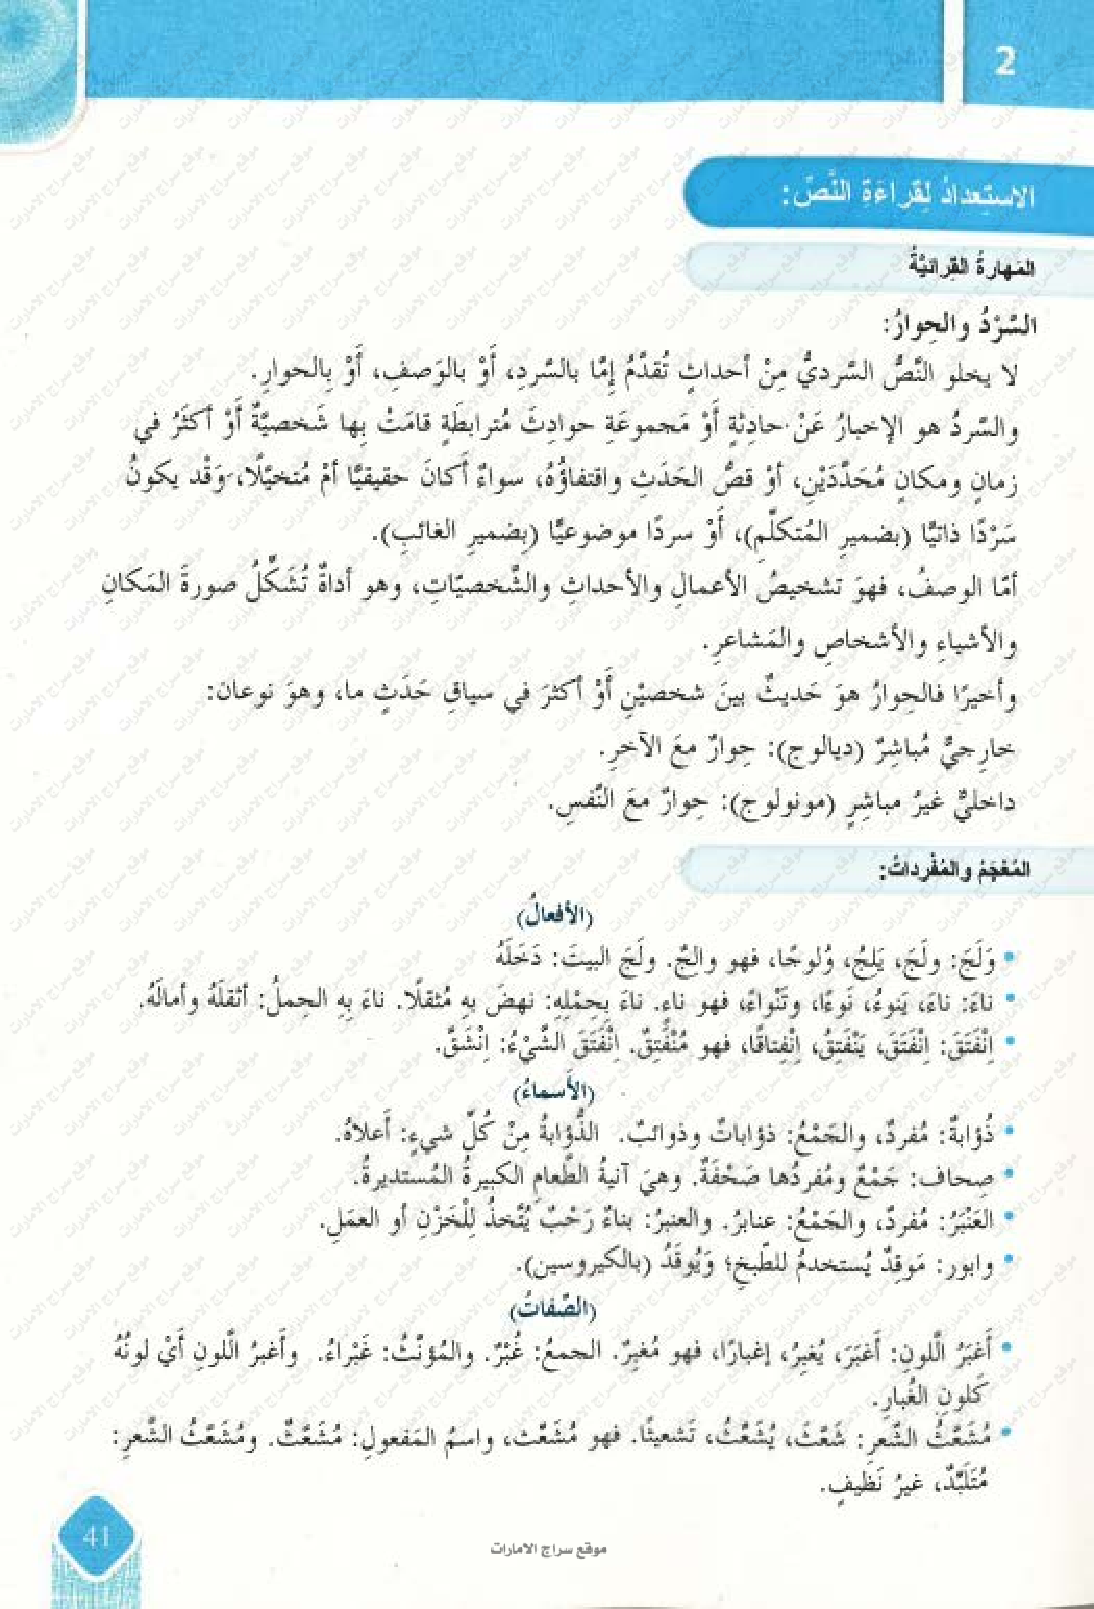 2
الاستِعدادُ لِقراءَةِ النَّصِّ:
المَهارةُ القِرائيَّةُ
السَّرْدُ والحِوارُ:
لا يخلو النَّصُّ السَّرديُّ مِنْ أحداثٍ تُقدَّمُ إمَّا بالسَّردِ، أَوْ بالوَصفِ، أَوْ بِالحوارِ.
والسَّردُ هو الإخبارُ عَنْ حادِثةٍ أَوْ مَجموعَةِ حوادِثَ مُترابطَةٍ قامَتْ بِها شَخصيَّةٌ أَوْ أكثَرُ في
زمانٍ ومكانٍ مُحَدَّدَيْنِ، أوْ قصُّ الحَدَثِ واقتفاؤُهُ، سواءٌ أَكانَ حقيقيًّا أمْ مُتخيَّلًا، وَقْد يكونُ
سَرْدًا ذاتيًّا (بضميرِ المُتكلِّمِ)، أَوْ سردًا موضوعيًّا (بِضميرِ الغائبِ).
أمّا الوصفُ، فهوَ تشخيصُ الأعمالِ والأحداثِ والشَّخصيّاتِ، وهو أداةٌ تُشَكِّلُ صورةَ المَكانِ
والأشياءِ والأشخاصِ والمَشاعرِ.
وأخيرًا فالحِوارُ هوَ حَديثٌ بينَ شخصيْنِ أَوْ أكثرَ في سياقِ حَدَثٍ ما، وهوَ نوعان:
خارِجيٌّ مُباشِرٌ (ديالوج): حِوارٌ معَ الآخرِ.
داخليٌّ غيرُ مباشِرٍ (مونولوج): حِوارٌ معَ النَّفسِ.
المُعْجَمُ والمُفْرداتُ:
(الأفعالُ)
• وَلَجَ: ولَجَ، يَلِجُ، وُلوجًا، فهو والجٌ. ولَجَ البيتَ: دَخَلَهُ
• ناءَ: ناءَ، يَنوءُ، نَوءًا، وتَنْواءً، فهو ناءٍ. ناءَ بِحِمْلِهِ: نهضَ بهِ مُثقلًا. ناءَ بِهِ الحِملُ: أثقلَهُ وأمالَهُ.
• اِنْفَتَقَ: اِنْفَتَقَ، يَنْفَتِقُ، اِنْفِتاقًا، فهو مُنْفَتِقٌ. اِنْفَتَقَ الشَّيْءُ: اِنْشَقَّ.
(الأَسماءُ)
• ذُؤابةٌ: مُفردٌ، والجَمْعُ: ذؤاباتٌ وذوائبٌ. الذُّؤابةُ مِنْ كُلِّ شيءٍ: أَعلاهُ.
• صِحاف: جَمْعٌ ومُفردُها صَحْفَةٌ. وهيَ آنيةُ الطَّعامِ الكبيرةُ المُستديرةُ.
• العَنْبَرُ: مُفردٌ، والجَمْعُ: عنابرُ. والعنبرُ: بناءٌ رَحْبٌ يُتَّخذُ لِلْخَزْنِ أو العمَلِ.
• وابور: مَوقِدٌ يُستخدمُ للطّبخِ؛ وَيُوقَدُ (بالكيروسين).
(الصِّفاتُ)
• أَغبَرُ الَّلونِ: أَغبَرَ، يُغبِرُ، إغبارًا، فهو مُغبِرٌ. الجمعُ: غُبْرٌ. والمُؤنَّثُ: غَبْراءُ. وأَغبرُ الَّلونِ أَيْ لونُهُ
كَلونِ الغُبارِ.
• مُشَعَّثُ الشَّعرِ: شَعَّثَ، يُشَعِّثُ، تَشعيثًا. فهو مُشَعِّث، واسمُ المَفعولِ: مُشَعَّثٌ. ومُشَعَّثُ الشَّعرِ:
مُتَلَبِّدٌ، غيرُ نَظيفٍ.
41
موقع سراج الامارات